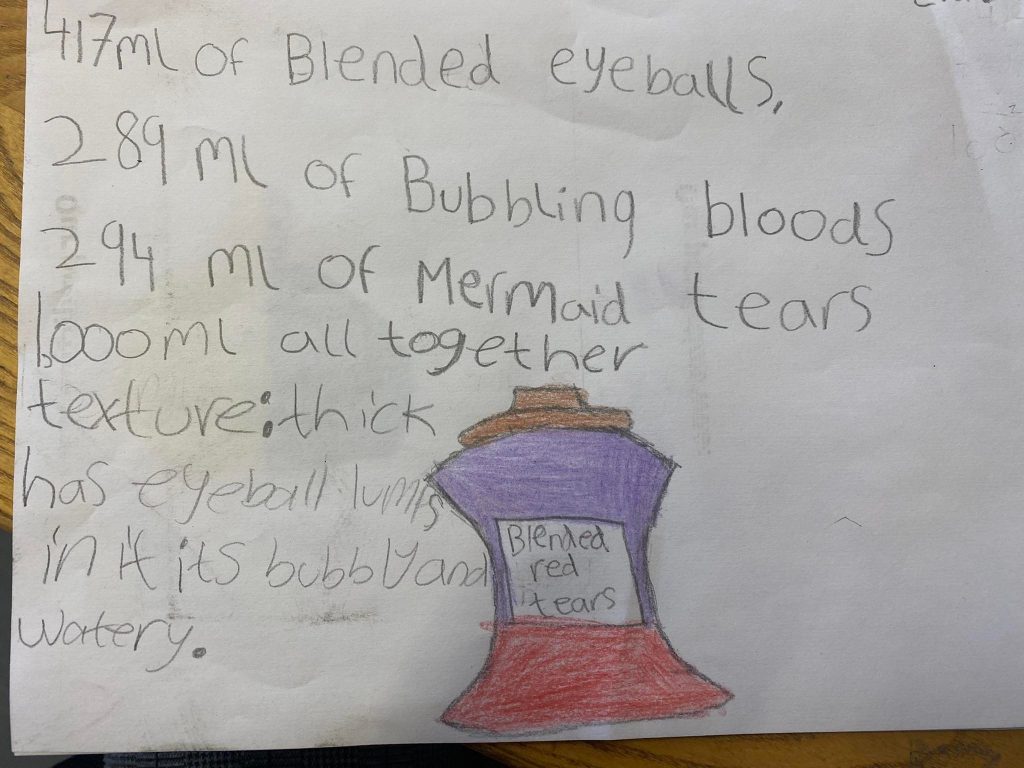 417ml of Blended eyeballs,
289 ml of Bubbling bloods
294 ml of Mermaid tears
1,000ml all together
texture: thick
has eyeball lumps
in it its bubbly and
watery.
Blended
red
tears